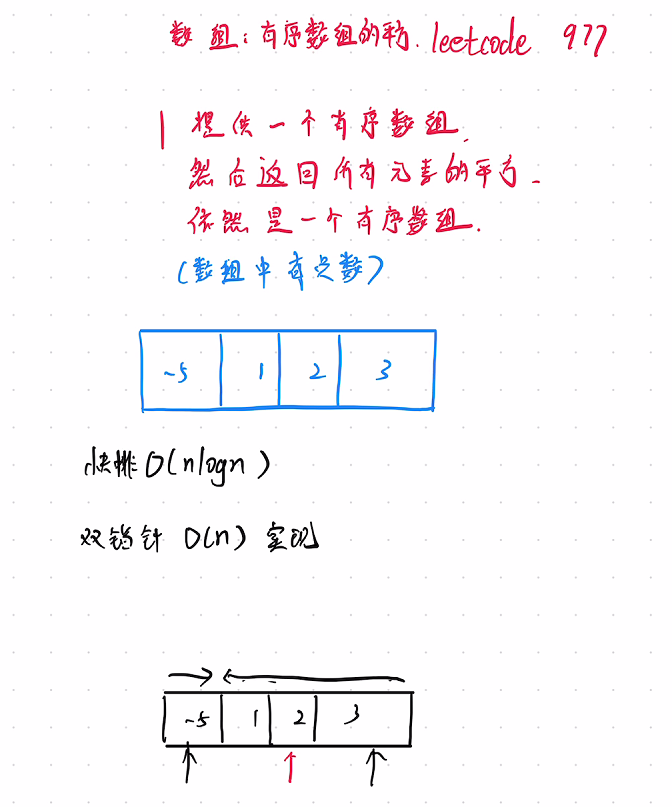 数组:有序数组的平方. leetcode 977
1 提供一个有序数组.
然后返回所有元素的平方.
依然是一个有序数组.
(数组中有负数)
-5 1 2 3
快排 O(nlogn)
双指针 O(n) 实现
-5 1 2 3